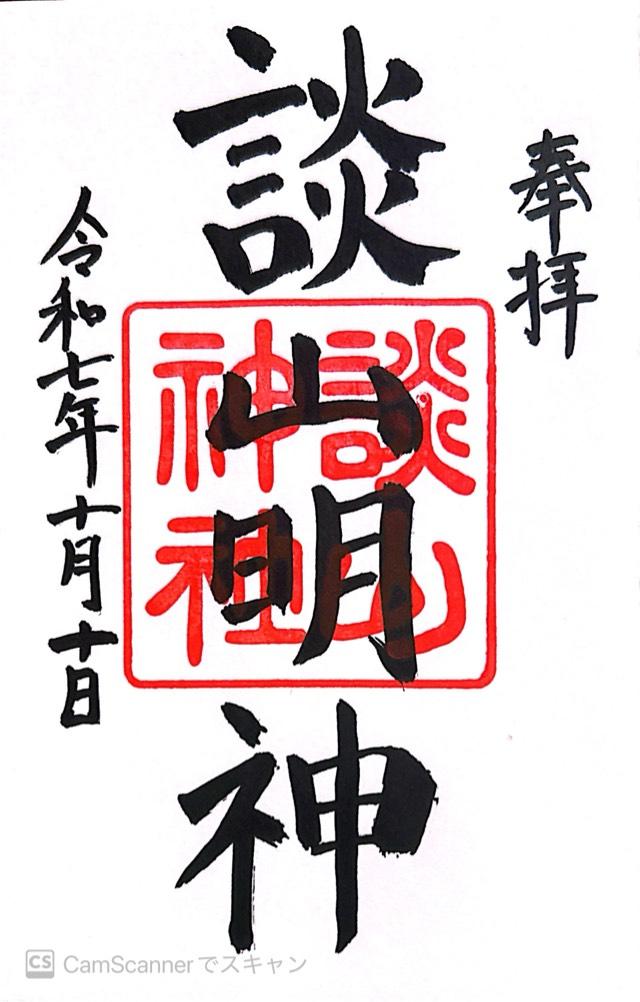 奉拝
談山明神
談山
神社
令和七年十月十日
CS CamScannerでスキャン